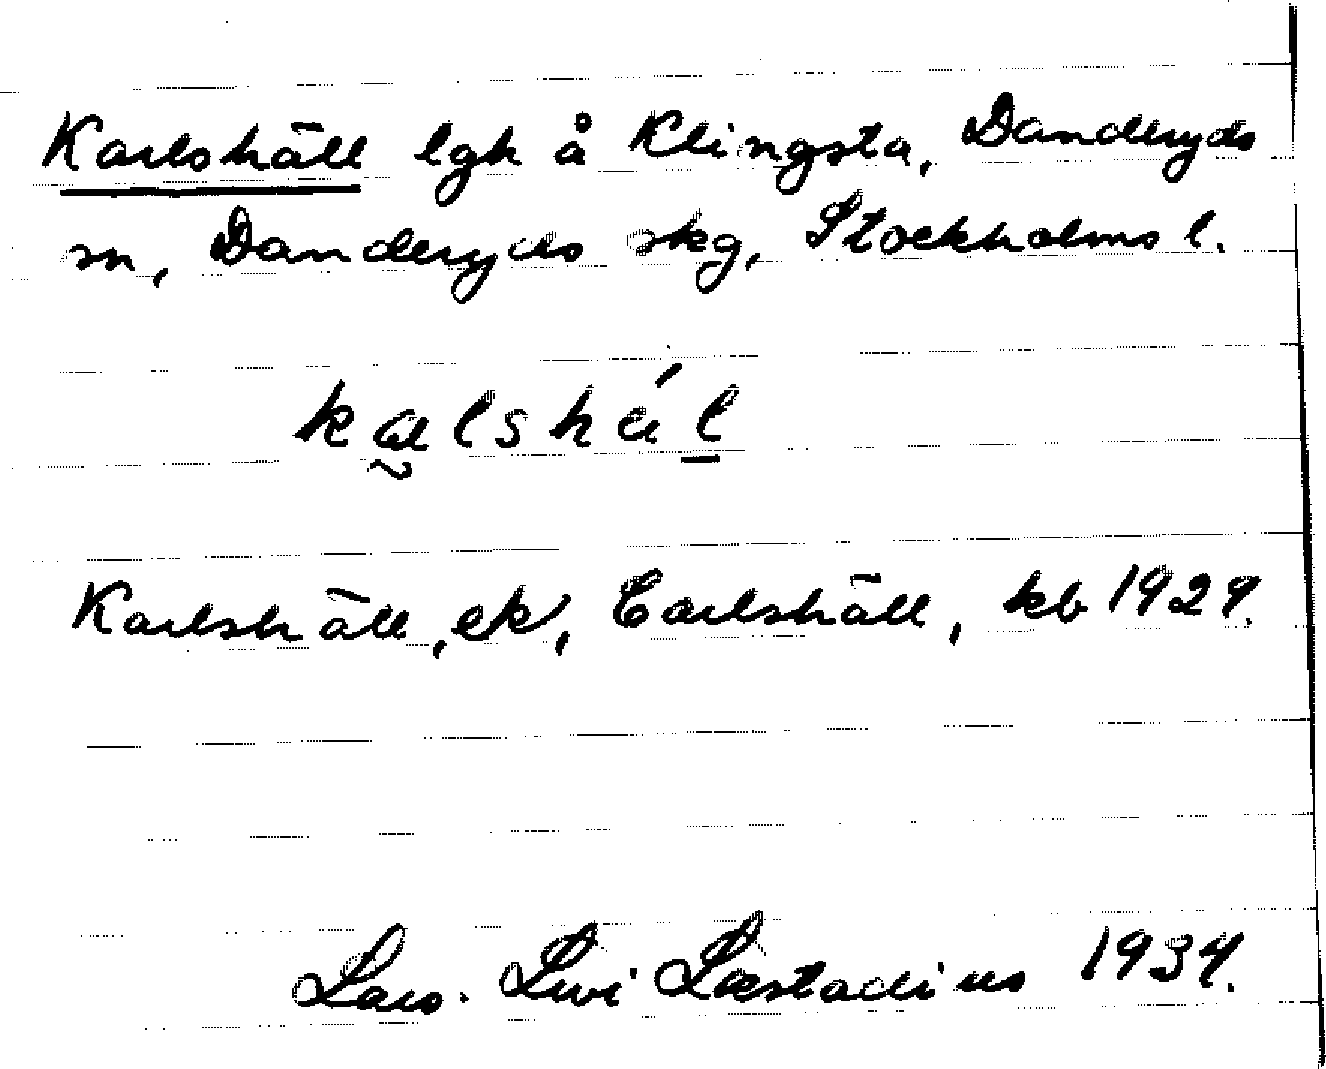 Karlshäll lgh å Klingsta, Danderyds
sn, Danderyds skg, Stockholms l.
kalshál
Karlshäll, ek, Carlshäll, kb 1929.
Lars. Livi Læstadius 1934.